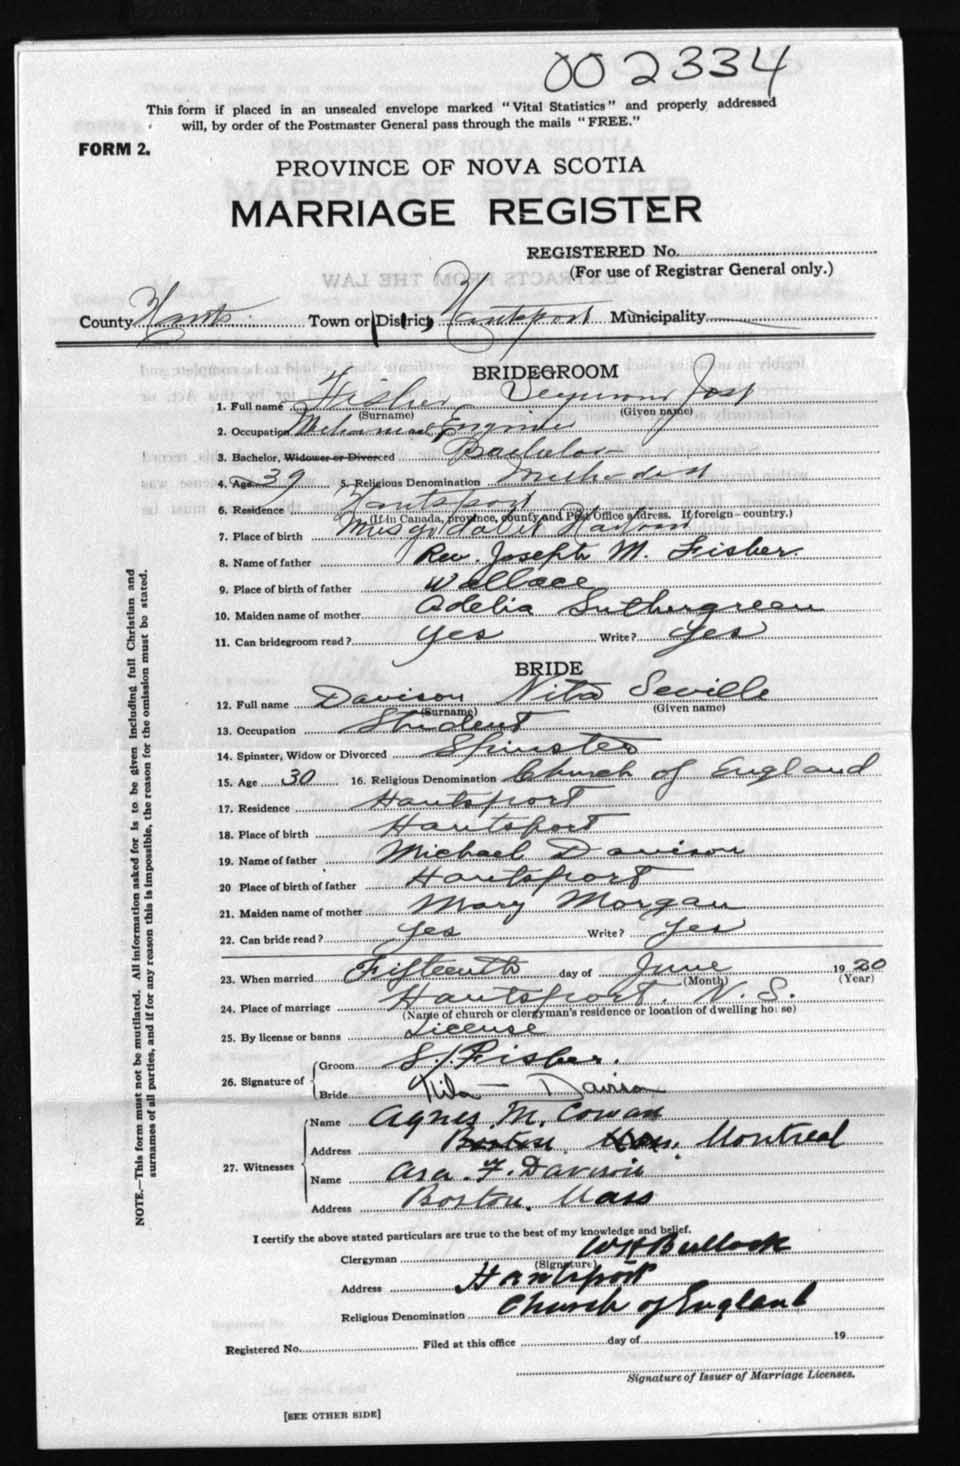 002334
This form if placed in an unsealed envelope marked "Vital Statistics" and properly addressed
will, by order of the Postmaster General pass through the mails "FREE."
FORM 2.
PROVINCE OF NOVA SCOTIA
MARRIAGE REGISTER
REGISTERED No.
(For use of Registrar General only.)
County Hants Town or District Hantsport Municipality
BRIDEGROOM
1. Full name Fisher Seymour Jost
(Surname) (Given name)
2. Occupation Mechanical Engineer
3. Bachelor, Widower or Divorced Bachelor
4. Age 39 5. Religious Denomination Methodist
6. Residence Hantsport
(If in Canada, province, county and Post Office address. If foreign - country.)
7. Place of birth Musquodoboit Harbour
8. Name of father Rev. Joseph M. Fisher
9. Place of birth of father Wallace
10. Maiden name of mother Adelia
11. Can bridegroom read? Yes Write? Yes
BRIDE
12. Full name Davison Nita Seville
(Surname) (Given name)
13. Occupation Student
14. Spinster, Widow or Divorced Spinster
15. Age 30 16. Religious Denomination Church of England
17. Residence Hantsport
18. Place of birth Hantsport
19. Name of father Michael Davison
20 Place of birth of father Hantsport
21. Maiden name of mother Mary Morgan
22. Can bride read? Yes Write? Yes
23. When married Fifteenth day of June 1920
(Month) (Year)
24. Place of marriage Hantsport, N. S.
(Name of church or clergyman's residence or location of dwelling house)
25. By license or banns License
26. Signature of
Groom S. J. Fisher.
Bride Nita Davison
27. Witnesses
Name Agnes M. Cowan
Address Boston, Mass. Montreal
Name Asa. F. Davison
Address Boston, Mass
I certify the above stated particulars are true to the best of my knowledge and belief.
Clergyman W H Bullock
(Signature)
Address Hantsport
Religious Denomination Church of England
Registered No. Filed at this office day of 19
Signature of Issuer of Marriage Licenses.
[SEE OTHER SIDE]
NOTE.—This form must not be mutilated. All information asked for is to be given including full Christian and
surnames of all parties, and if for any reason this is impossible, the reason for the omission must be stated.